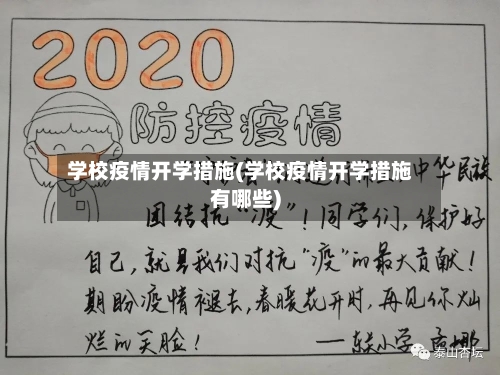 2020
防控疫情
学校疫情开学措施(学校疫情开学措施
有哪些)
中华民族
团结抗“疫”!同学们,保护好
自己,就是我们对抗“疫”的最大贡献!
期盼疫情褪去,春暖花开时,再见你灿
烂的笑脸!
小学
泰山杏坛